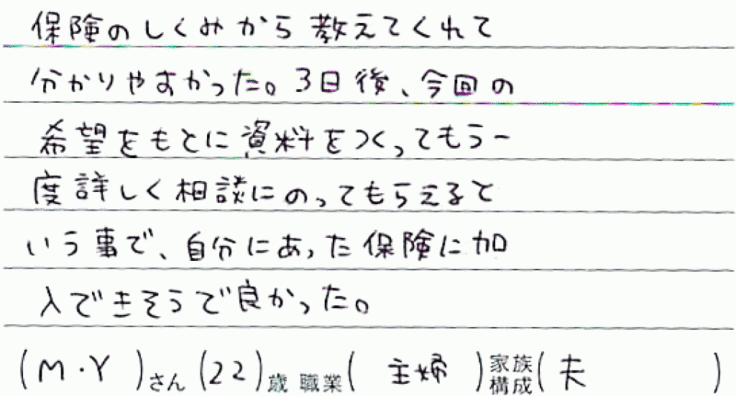 保険のしくみから教えてくれて
分かりやすかった。3日後、今回の
希望をもとに資料をつくってもう一
度詳しく相談にのってもらえると
いう事で、自分にあった保険に加
入できそうで良かった。
(M・Y)さん(22)歳 職業(主婦)家族構成(夫)